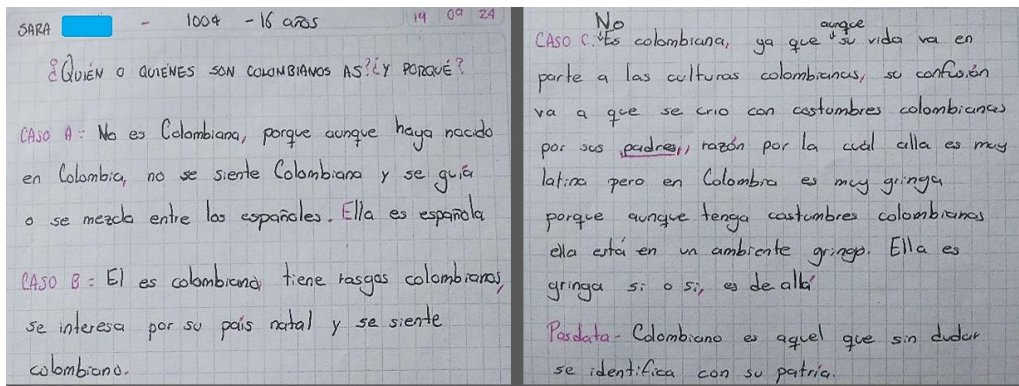 SARA - 1004 - 16 años 14 09 24
¿QUIÉN O QUIENES SON COLOMBIANOS AS? ¿Y PORQUÉ?
CASO A: No es Colombiana, porque aunque haya nacido
en Colombia, no se siente Colombiana y se guia
o se mezcla entre los españoles. Ella es española
CASO B: El es colombiano, tiene rasgos colombianos,
se interesa por su país natal y se siente
colombiano.
CASO C: No Es colombiana, ya que aunque su vida va en
parte a las culturas colombianas, su confusión
va a que se crio con costumbres colombianas
por sus padres, razón por la cual alla es muy
latina pero en Colombia es muy gringa
porque aunque tenga costumbres colombianas
ella está en un ambiente gringo. Ella es
gringa si o si, es de allá
Posdata - Colombiano es aquel que sin dudar
se identifica con su patria.